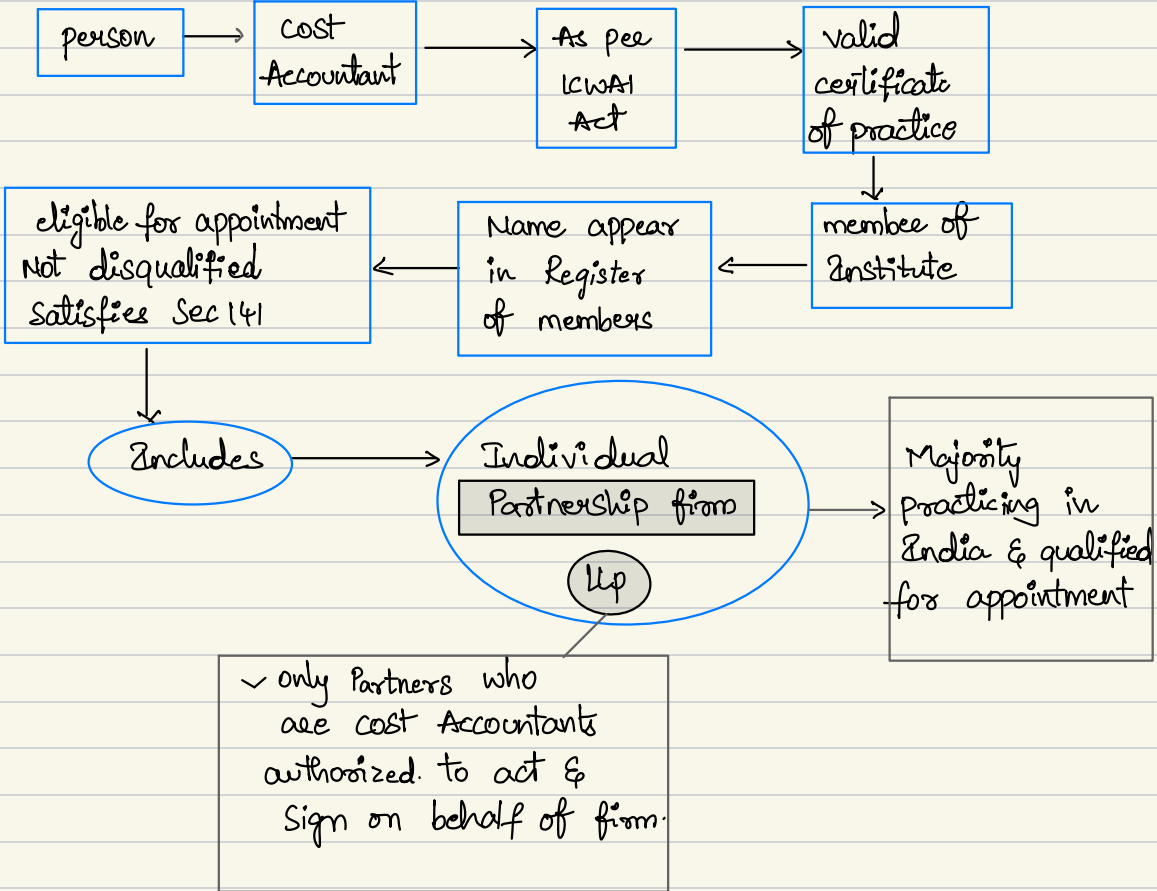 person
Cost
Accountant
As per
ICWAI
Act
valid
certificate
of practice
member of
Institute
Name appear
in Register
of members
eligible for appointment
Not disqualified
satisfies Sec 141
Includes
Individual
Partnership firm
LLP
Majority
practicing in
India & qualified
for appointment
✓ only Partners who
are cost Accountants
authorized. to act &
Sign on behalf of firm.